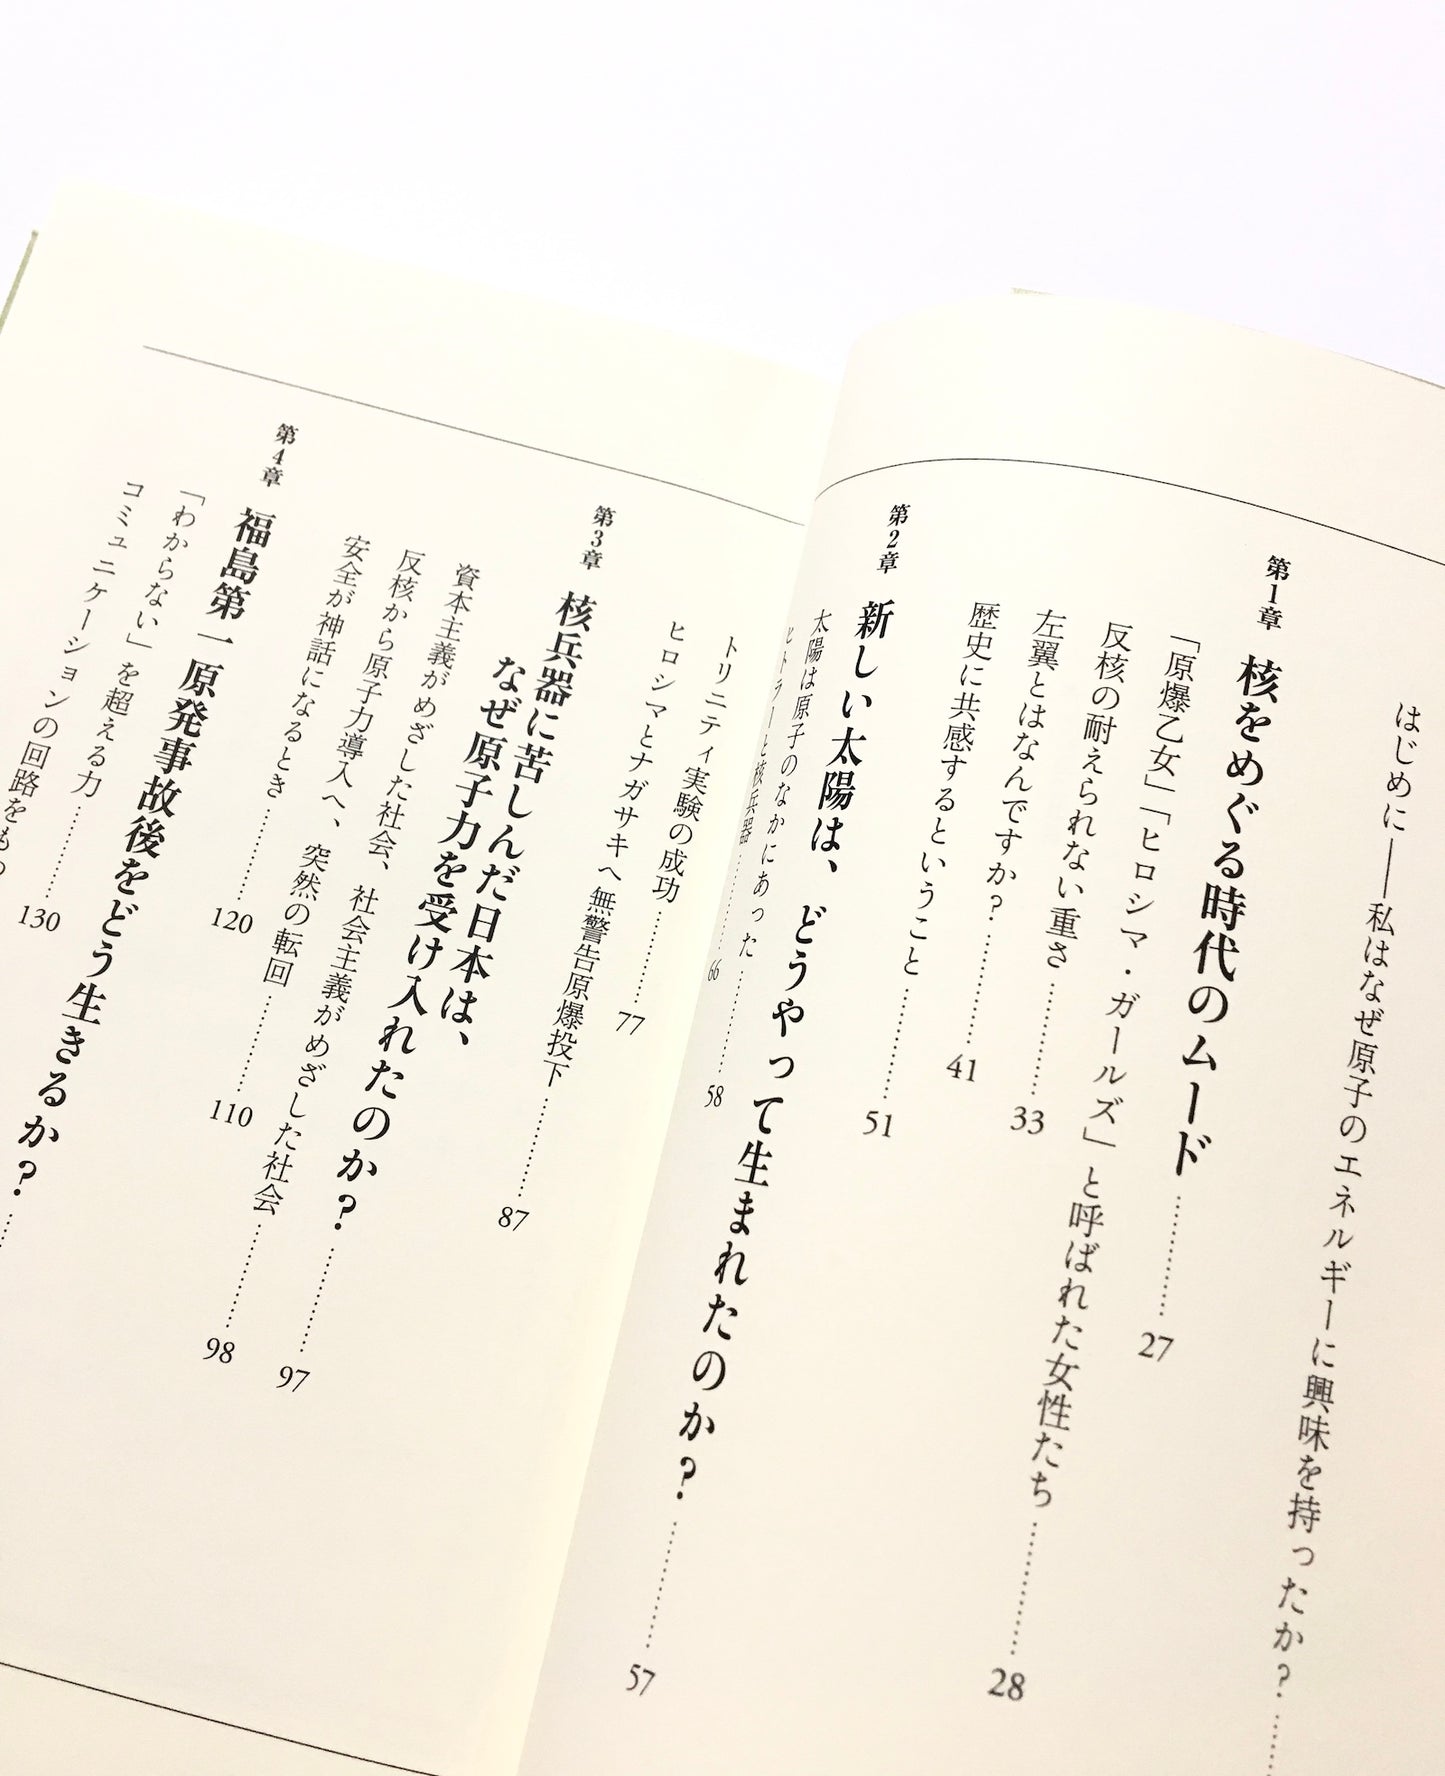 はじめに――私はなぜ原子のエネルギーに興味を持ったか？…………
第1章 核をめぐる時代のムード…………27
「原爆乙女」「ヒロシマ・ガールズ」と呼ばれた女性たち…………28
反核の耐えられない重さ…………33
左翼とはなんですか？…………41
歴史に共感するということ…………51
第2章 新しい太陽は、どうやって生まれたのか？…………57
太陽は原子のなかにあった…………58
ヒトラーと核兵器…………66
トリニティ実験の成功…………77
ヒロシマとナガサキへ無警告原爆投下…………87
第3章 核兵器に苦しんだ日本は、
なぜ原子力を受け入れたのか？…………97
資本主義がめざした社会、社会主義がめざした社会…………98
反核から原子力導入へ、突然の転回…………110
安全が神話になるとき…………120
第4章 福島第一原発事故後をどう生きるか？…………
「わからない」を超える力…………130
コミュニケーションの回路をもつ